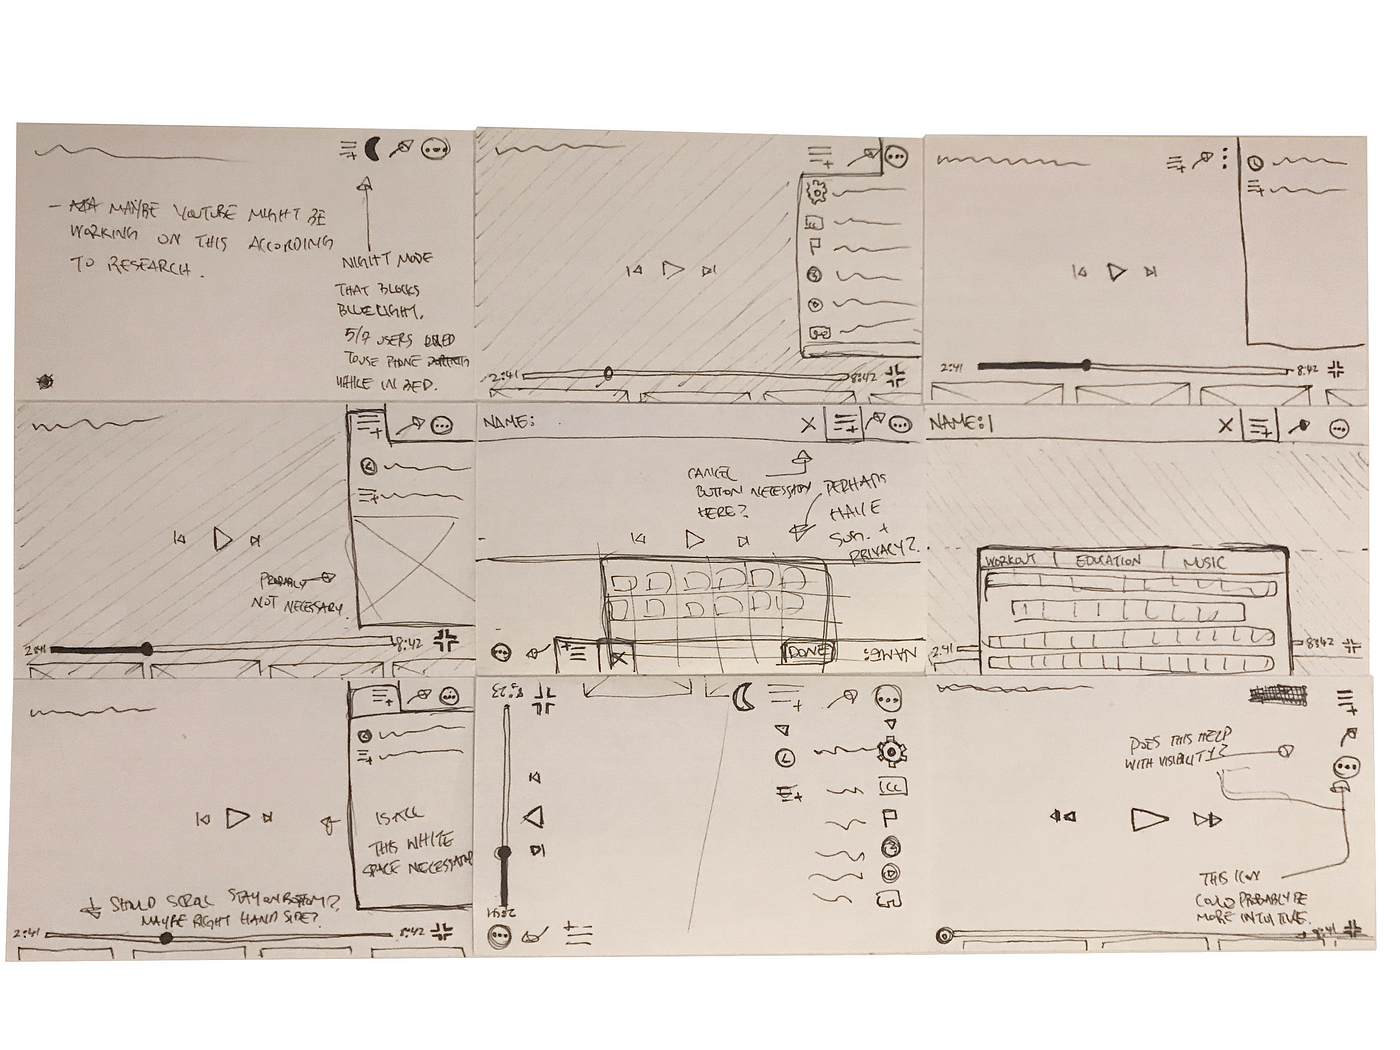 - MAYBE YOUTUBE MIGHT BE
WORKING ON THIS ACCORDING
TO RESEARCH.
NIGHT MODE
THAT BLOCKS
BLUE LIGHT.
5/7 USERS
TO USE PHONE
WHILE IN BED.
2:41
8:42
2:41
8:42
PROBABLY
NOT NECESSARY.
2:41
8:42
NAME:
X
CANCEL
BUTTON NECESSARY
HERE?
PERHAPS
HAVE
+
PRIVACY?
X
DONE
NAME:
NAME:|
X
WORKOUT | EDUCATION | MUSIC
2:41
8:42
IS ALL
THIS WHITE
SPACE NECESSARY
SHOULD SCROLL STAY ON BOTTOM?
MAYBE RIGHT HAND SIDE?
2:41
8:42
8:23
CC
2:41
DOES THIS HELP
WITH VISIBILITY?
THIS ICON
COULD PROBABLY BE
MORE INTUITIVE.